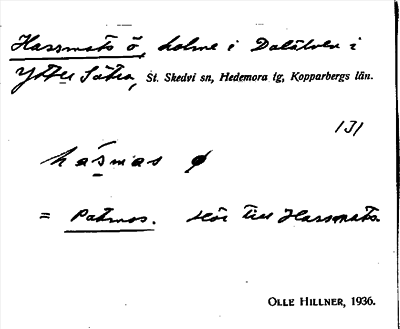 Hassmats ö, holme i Dalälven i
Ytter Sätra, St. Skedvi sn, Hedemora tg, Kopparbergs län.
131
hásmas ø
= Patmos. Hör till Hassmats.
OLLE HILLNER, 1936.